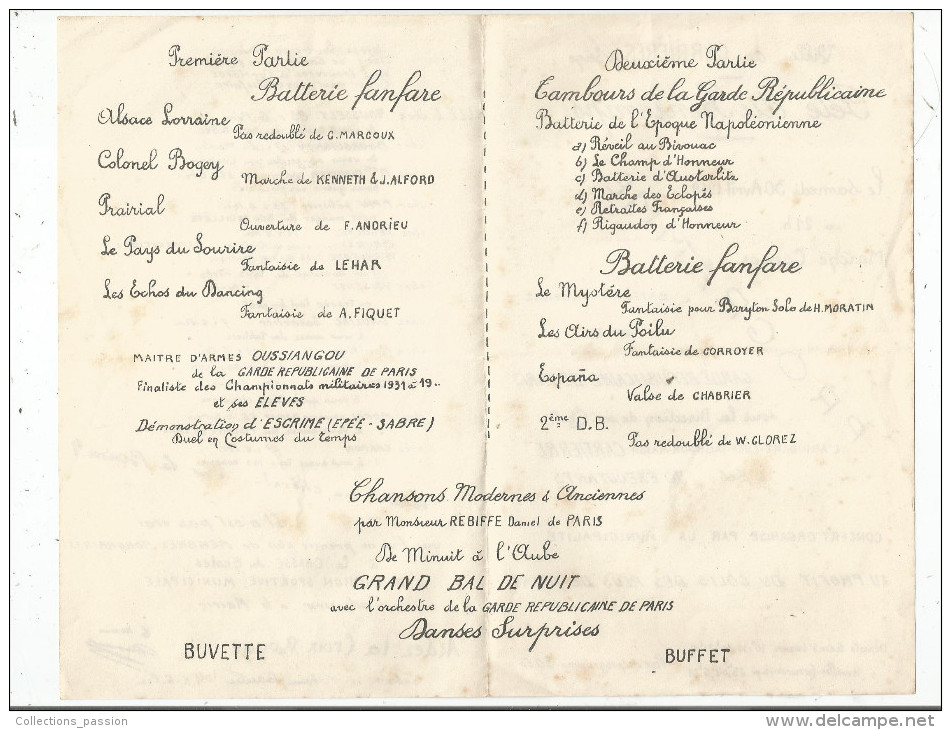 Première Partie
Batterie fanfare
Alsace Lorraine
Pas redoublé de G. MARCOUX
Colonel Bogey
Marche de KENNETH & J. ALFORD
Prairial
Ouverture de F. ANDRIEU
Le Pays du Sourire
Fantaisie de LEHAR
Les Echos du Dancing
Fantaisie de A. FIQUET
MAITRE D'ARMES OUSSIANGOU
de la GARDE REPUBLICAINE DE PARIS
Finaliste des Championnats militaires 1931 à 19..
et ses ELEVES
Démonstration d'ESCRIME (EPÉE - SABRE)
Duel en Costumes du temps
Deuxième Partie
Tambours de la Garde Républicaine
Batterie de l'Epoque Napoléonienne
a) Réveil au Bivouac
b) Le Champ d'Honneur
c) Batterie d'Austerlitz
d) Marche des Eclopés
e) Retraites Françaises
f) Rigaudon d'Honneur
Batterie fanfare
Le Mystère
Fantaisie pour Baryton Solo de H. MORATIN
Les Airs du Poilu
Fantaisie de CORROYER
España
Valse de CHABRIER
2ème D.B.
Pas redoublé de W. GLOREZ
Chansons Modernes & Anciennes
par Monsieur REBIFFE Daniel de PARIS
De Minuit à l'Aube
GRAND BAL DE NUIT
avec l'orchestre de la GARDE REPUBLICAINE DE PARIS
Danses Surprises
BUVETTE
BUFFET
Collections_passion
www.delcampe.net